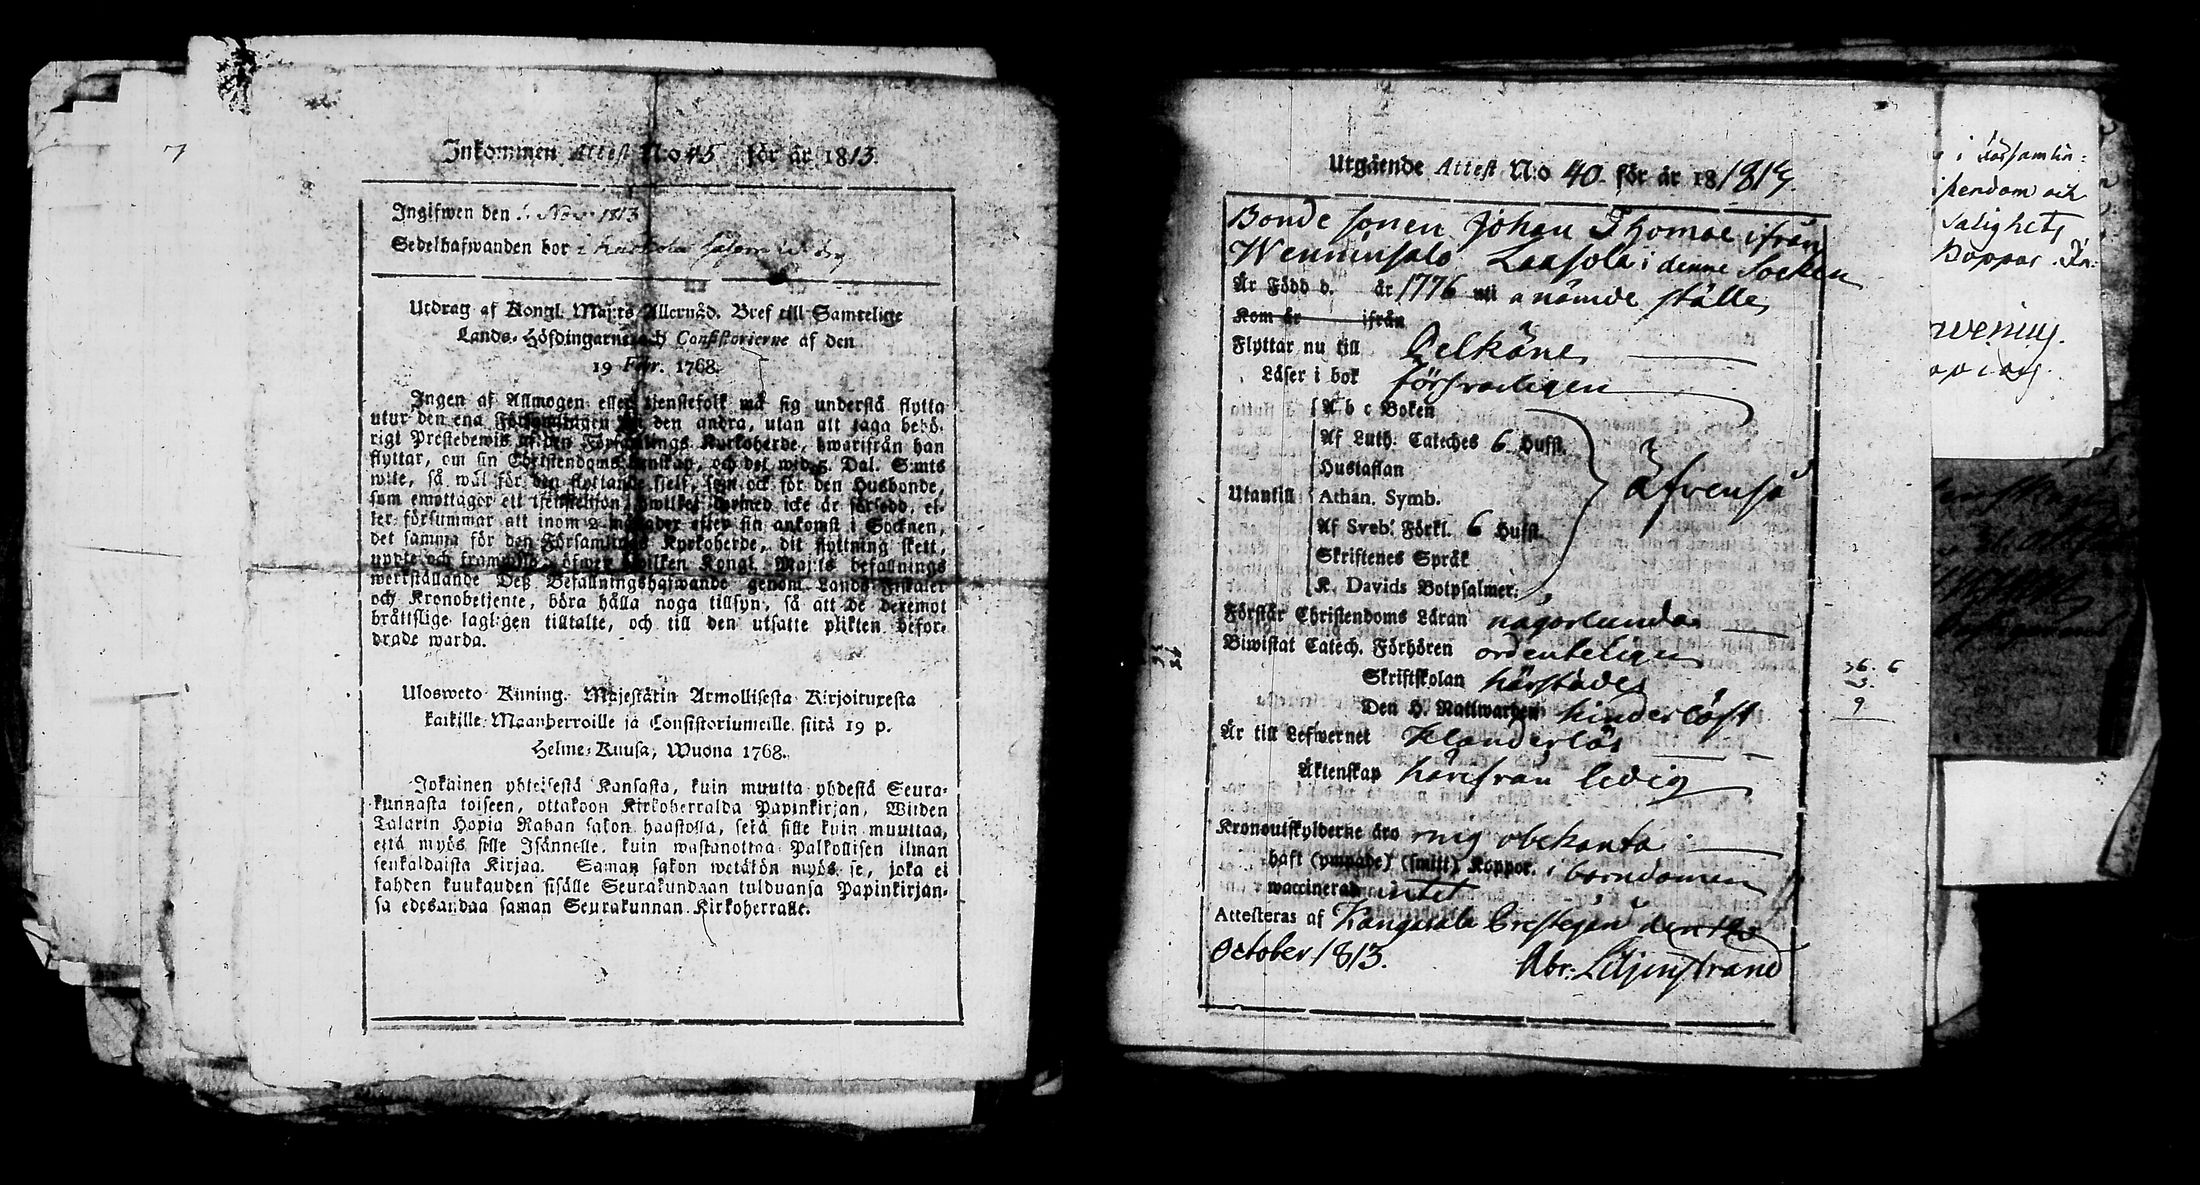 Inkommen Attest N:o 45 för år 1813.
Ingifwen den Nov. 1813
Sedelhafwanden bor i
Utdrag af Kongl. Maj:ts Allernåd. Bref till Samtelige
Lands-Höfdingarne och Consistorierne af den
19 Febr. 1768.
Ingen af Allmogen eller tjenstefolk må sig understå flytta
utur den ena Församlingen till den andra, utan att taga behö-
rigt Prestebewis af den Församlings Kyrkoherde, hwarifrån han
flyttar, om sin Christendoms kunskap, och det wid 5. Dal. S:mts
wite, så wäl för den flyttande sjelf, som ock för den Husbonde,
som emottager ett tjenstehjon hwilket dermed icke är försedd, el-
ler försummar att inom 2 månader efter sin ankomst i Socknen,
det samma för den Församlings Kyrkoherde, dit flyttning skett,
uppte och framwisa, öfwer hwilken Kongl. Maj:ts befallnings
werkställande Deß Befallningshafwande genom Lands-Fiskaler
och Kronobetjente, böra hålla noga tillsyn, så att de deremot
bråttslige lagligen tilltalte, och till den utsatte plikten befor-
drade warda.
Ulosweto Kuning. Majestätin Armollisesta Kirjoituxesta
kaikille Maanherroille ja Consistoriumeille siitä 19 p.
Helme-Kuusa, Wuona 1768.
Jokainen yhteisestä Kansasta, kuin muutta yhdestä Seura-
kunnasta toiseen, ottakoon Kirkoherralda Papinkirjan, Wiiden
Talarin Hopia Rahan sakon haastolla, sekä sille kuin muuttaa,
että myös sille Isännelle, kuin wastanottaa Palkollisen ilman
senkaldaista Kirjaa. Saman sakon wetäkön myös se, joka ei
kahden kuukauden sisälle Seurakundaan tulduansa Papinkirjan-
sa edesandaa saman Seurakunnan Kirkoherralle.
Utgående Attest N:o 40. för år 18 1813.
Bonde sonen Johan Thomae ifrån
Wenninsalo Laasola i denne Socken
Är Född d. år 1776 uti anämde ställe
Kom år ifrån
Flyttar nu till Pelkäne
Läser i bok försvarligen
A b c Boken
Af Luth. Cateches 6 Hufst.
Hustaflan
Utantill Athan. Symb. äfvenså
Af Sveb. Förkl. 6 Hufst.
Skriftenes Språk
K. Davids Botpsalmer.
Förstår Christendoms Läran någorlunda
Biwistat Catech. Förhören ordenteligen
Skriftskolan härstädes
Den H. Nattwarden hinderlöst
Är till Lefwernet klanderlös
Äktenskap härifrån ledig
Kronoutskylderne äro mig obekanta
haft (ympade) (smitt) Koppor. i barndomen
waccinerad intet
Attesteras af Kangasala Prestegård den
October 1813. Abr: Liljenstrand
36. 6
9
i församlin-
stendom och
Salighets
Koppor.